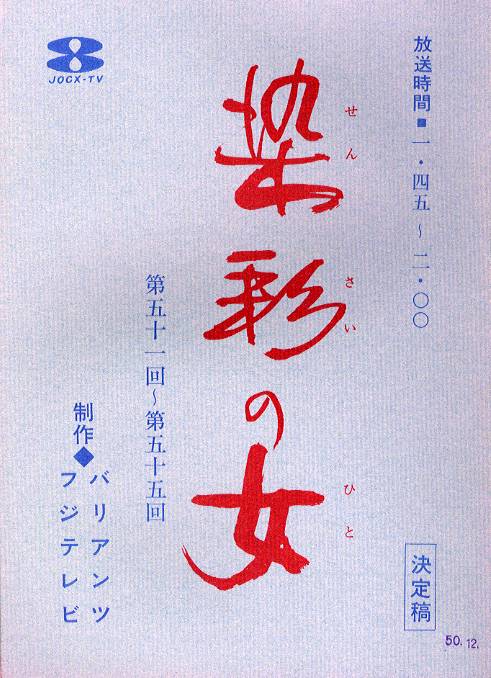 放送時間■一・四五～二・〇〇
染彩の女
せんさい ひと
第五十一回～第五十五回
制作◆バリアンツ
フジテレビ
JOCX-TV
決定稿
50.12.